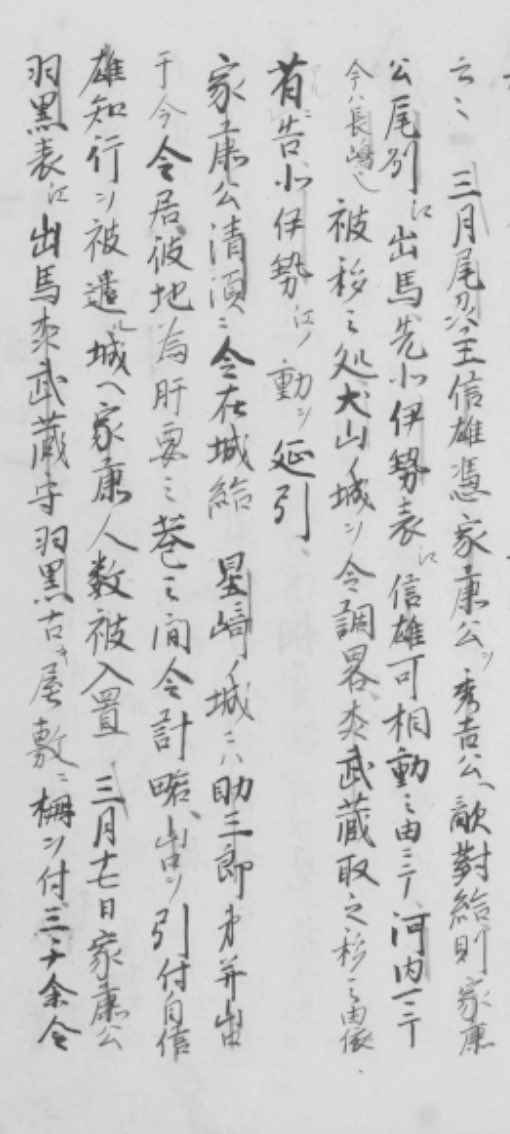 云々 三月尾刕主信雄憑家康公ヲ秀吉公ヘ敵對給則家康
公尾刕江出馬先小伊勢表江信雄可相動之由ニテ河内一ニテ
今ハ長嶋也被移之処犬山ノ城ヲ令調畧森武蔵取之移之由依
有告小伊勢江ノ動ヲ延引、
家康公清須ニ令在城給 星崎ノ城ニハ助三郎弟并
于今令居彼地為肝要之巷之間令計略、ヲ引付自信
雄知行ヲ被遣城ヘ家康人数被入置 三月十七日家康公
羽黒表江出馬森武蔵守羽黒古キ屋敷ニ柵ヲ付三千余令